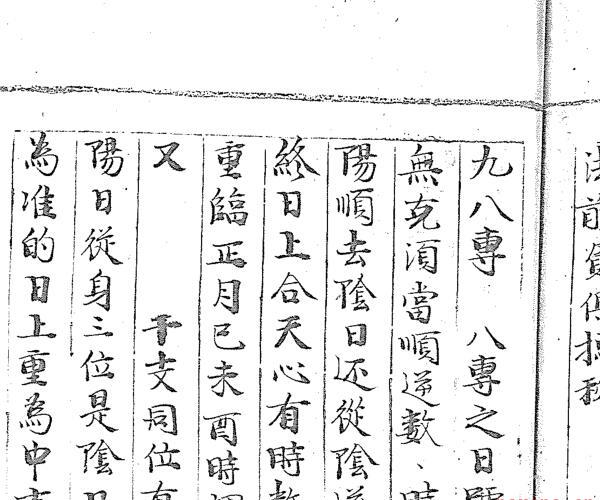 法前賃俱
九八專 八專之日
無克須當順逆數、時
陽順去陰日还從陰逆
終日上合天心有時
重臨正月己未酉時
又 干支同位有
陽日從身三位是陰日
為准的日上重為中